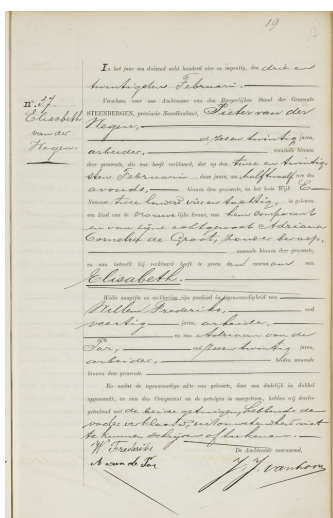 19
In het jaar een duizend acht honderd vier en negentig, den drie en
twintigsten Februari.
Verscheen voor ons Ambtenaar van den Burgerlijken Stand der Gemeente
STEENBERGEN, provincie Noordbrabant, Pieter van der
Wegen,
oud zes en twintig jaren,
arbeider, wonende binnen
deze gemeente, die ons heeft verklaard, dat op den twee en twintig-
sten Februari dezes jaars, ten half twaalf ure des
avonds, binnen deze gemeente, in het huis Wijk E
Nummer twee honderd vier en tachtig, is geboren
een kind van de vrouwelijke kunne, van hem Comparant
en van zijne echtgenoot Adriana
Cornelia de Groot, zonder beroep,
wonende binnen deze gemeente,
en aan hetwelk hij verklaard heeft te geven den voornaam van
Elisabeth.
Welke aangifte en verklaring zijn geschied in tegenwoordigheid van
Willem Frederiks, oud
veertig jaren, arbeider,
en van Adriaan van de
Par, oud zes en twintig jaren,
arbeider, beiden wonende
binnen deze gemeente.
En nadat de tegenwoordige akte van geboorte, door ons dadelijk in dubbel
opgemaakt, en aan den Comparant en de getuigen is voorgelezen, hebben wij dezelve
geteekend met de beide getuigen, hebbende de
vader verklaard, uit onwetendheid niet
te kunnen schrijven of teekenen.
De Ambtenaar voornoemd,
W. Frederiks
A van de Par
J. J. van Loon
n°. 37
Elisabeth
van der
Wegen